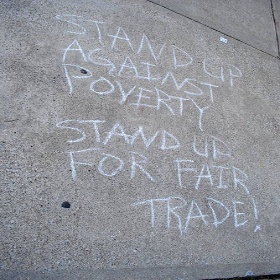 STAND UP
AGAINST
POVERTY
STAND UP
FOR FAIR
TRADE!